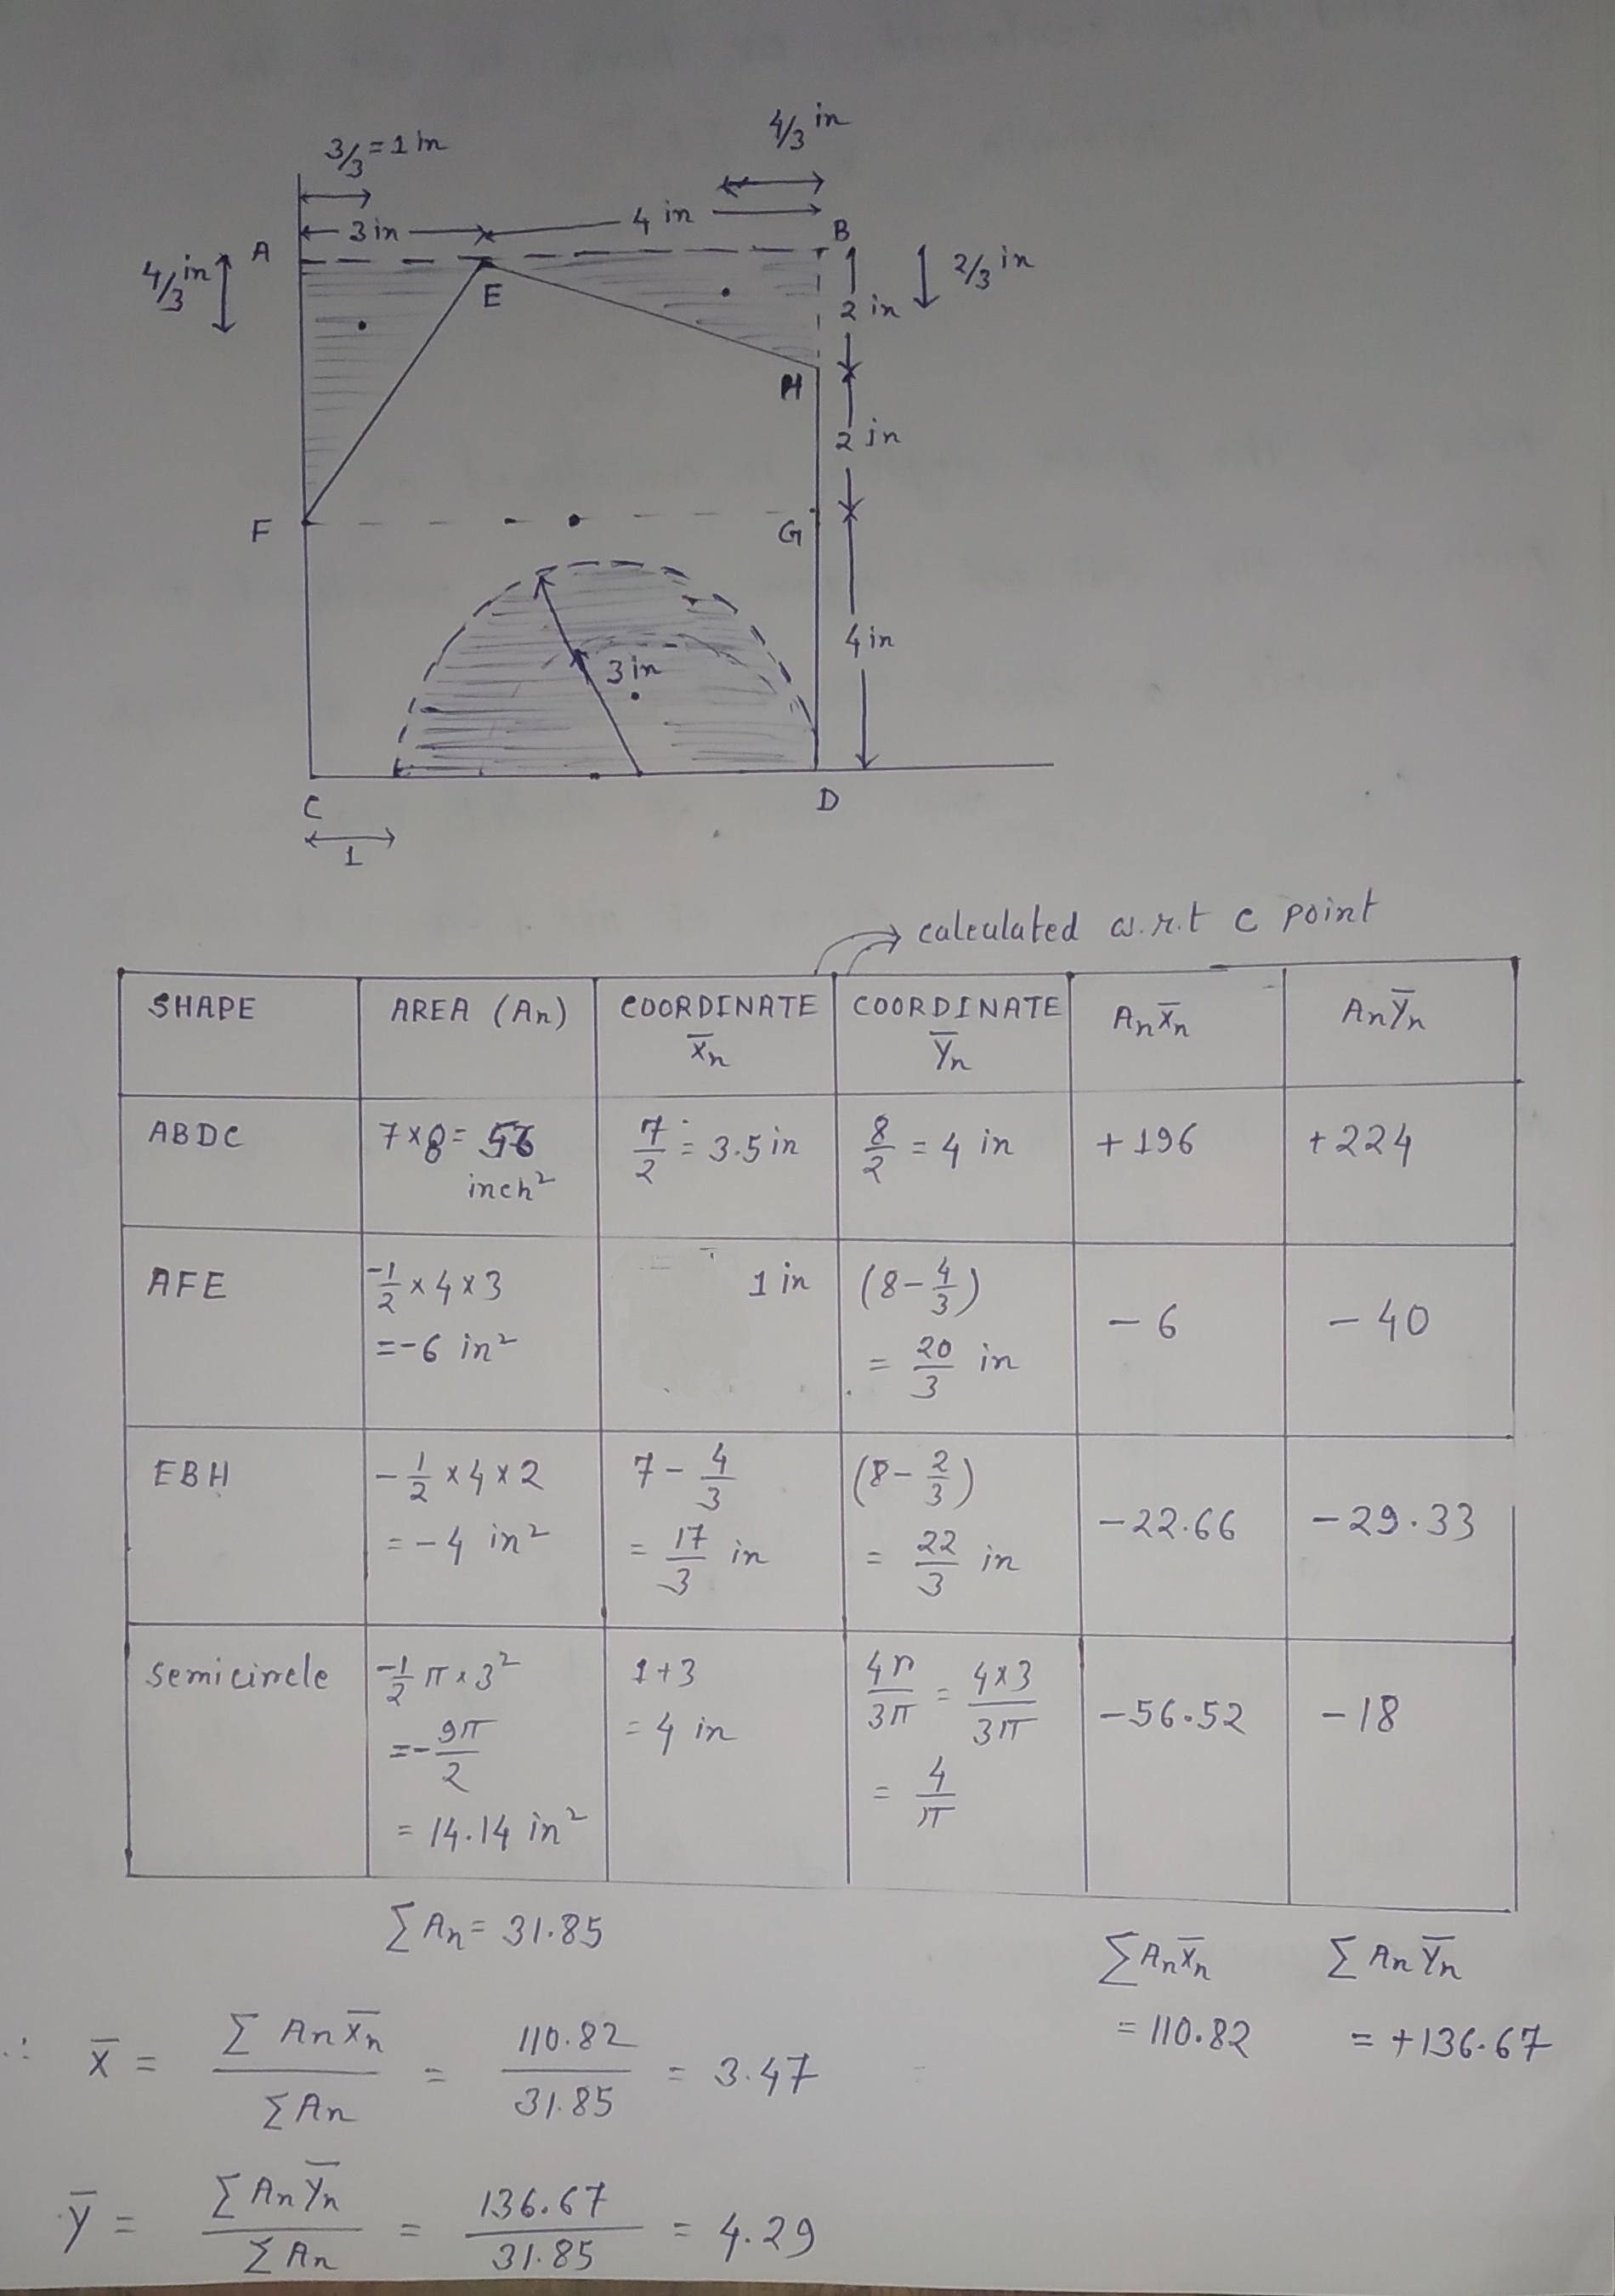 4/3 in
3/3 = 1 in
4 in
3 in
B
A
4/3 in
2/3 in
E
2 in
H
2 in
F
G
4 in
3 in
C
D
1
calculated w.r.t C point
SHAPE
AREA (An)
COORDINATE X̅n
COORDINATE Y̅n
AnX̅n
AnY̅n
ABDC
7×8 = 56 inch²
7/2 = 3.5 in
8/2 = 4 in
+196
+224
AFE
-1/2 × 4 × 3
= -6 in²
1 in
(8 - 4/3)
= 20/3 in
-6
-40
EBH
-1/2 × 4 × 2
= -4 in²
7 - 4/3
= 17/3 in
(8 - 2/3)
= 22/3 in
-22.66
-29.33
Semicircle
-1/2 π × 3²
= -9π/2
= 14.14 in²
1+3
= 4 in
4r/3π = 4×3/3π
= 4/π
-56.52
-18
∑An = 31.85
∑AnX̅n
= 110.82
∑AnY̅n
= +136.67
∴ X̅ = ∑AnX̅n/∑An = 110.82/31.85 = 3.47
Y̅ = ∑AnY̅n/∑An = 136.67/31.85 = 4.29